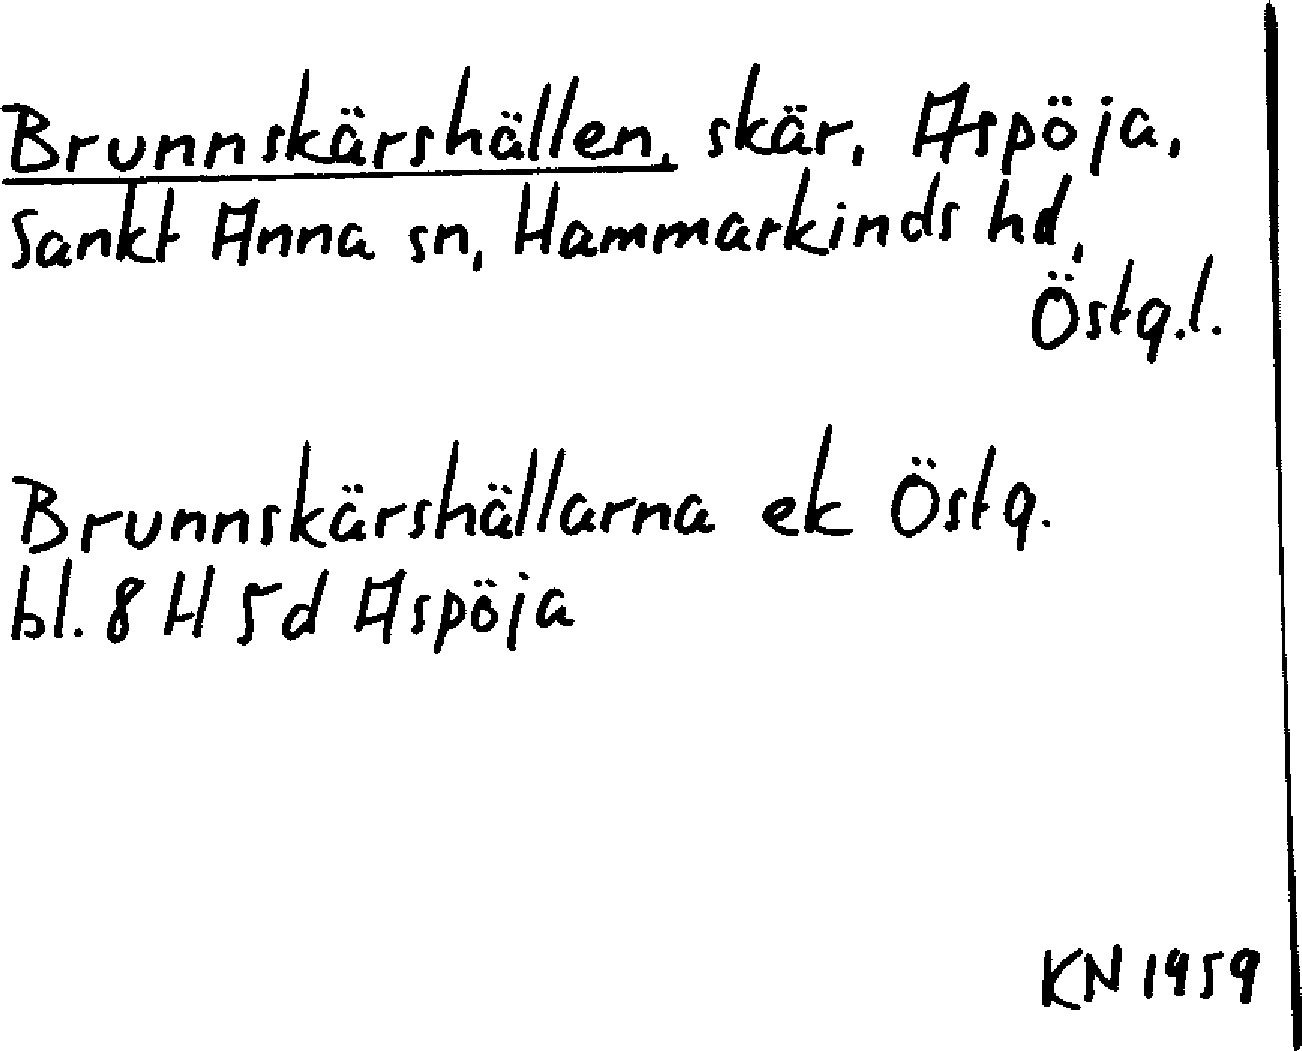 Brunnskärshällen, skär, Aspöja,
Sankt Anna sn, Hammarkinds hd,
Östg.l.
Brunnskärshällarna ek Östg.
bl. 8 H 5d Aspöja
KN 1959